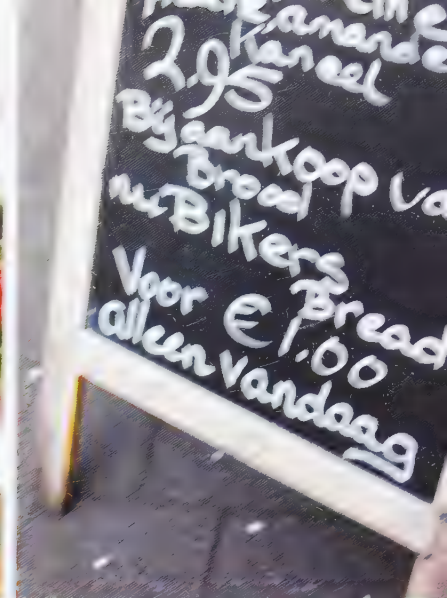 amande
Kaneel
2.95
Bij aankoop va
Brood
nu Bikers
Bread
Voor € 1.00
alleen vandaag